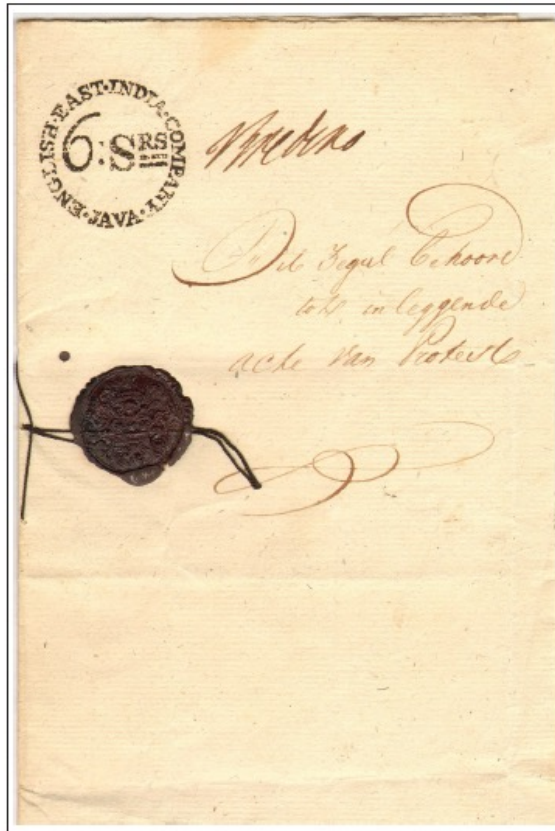 ENGLISH·EAST·INDIA·COMPANY·JAVA·
6:SRS
Dit Zegul behoord
tot inleggende
acte van Protest